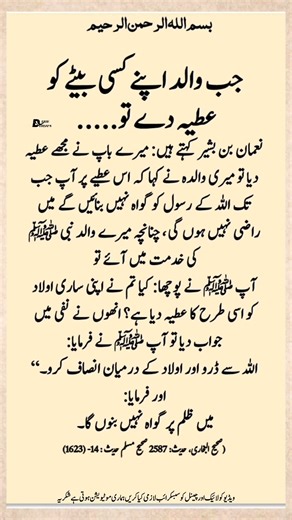 بسم اللہ الرحمن الرحیم
جب والد اپنے کسی بیٹے کو
عطیہ دے تو.....
نعمان بن بشیر کہتے ہیں: میرے باپ نے مجھے عطیہ
دیا تو میری والدہ نے کہا کہ اس عطیے پر آپ جب
تک اللہ کے رسول کو گواہ نہیں بنائیں گے میں
راضی نہیں ہوں گی، چنانچہ میرے والد نبی ﷺ
کی خدمت میں آئے تو
آپ ﷺ نے پوچھا: کیا تم نے اپنی ساری اولاد
کو اسی طرح کا عطیہ دیا ہے؟ انھوں نے نفی میں
جواب دیا تو آپ ﷺ نے فرمایا:
اللہ سے ڈرو اور اولاد کے درمیان انصاف کرو۔“
اور فرمایا:
میں ظلم پر گواہ نہیں بنوں گا۔
(صحیح البخاری، حدیث: 2587 صحیح مسلم حدیث : 14- (1623)
ویڈیو کو لائیک اور چینل کو سبسکرائب لازمی کیا کریں ہماری موٹیویشن ہوتی ہے شکریہ